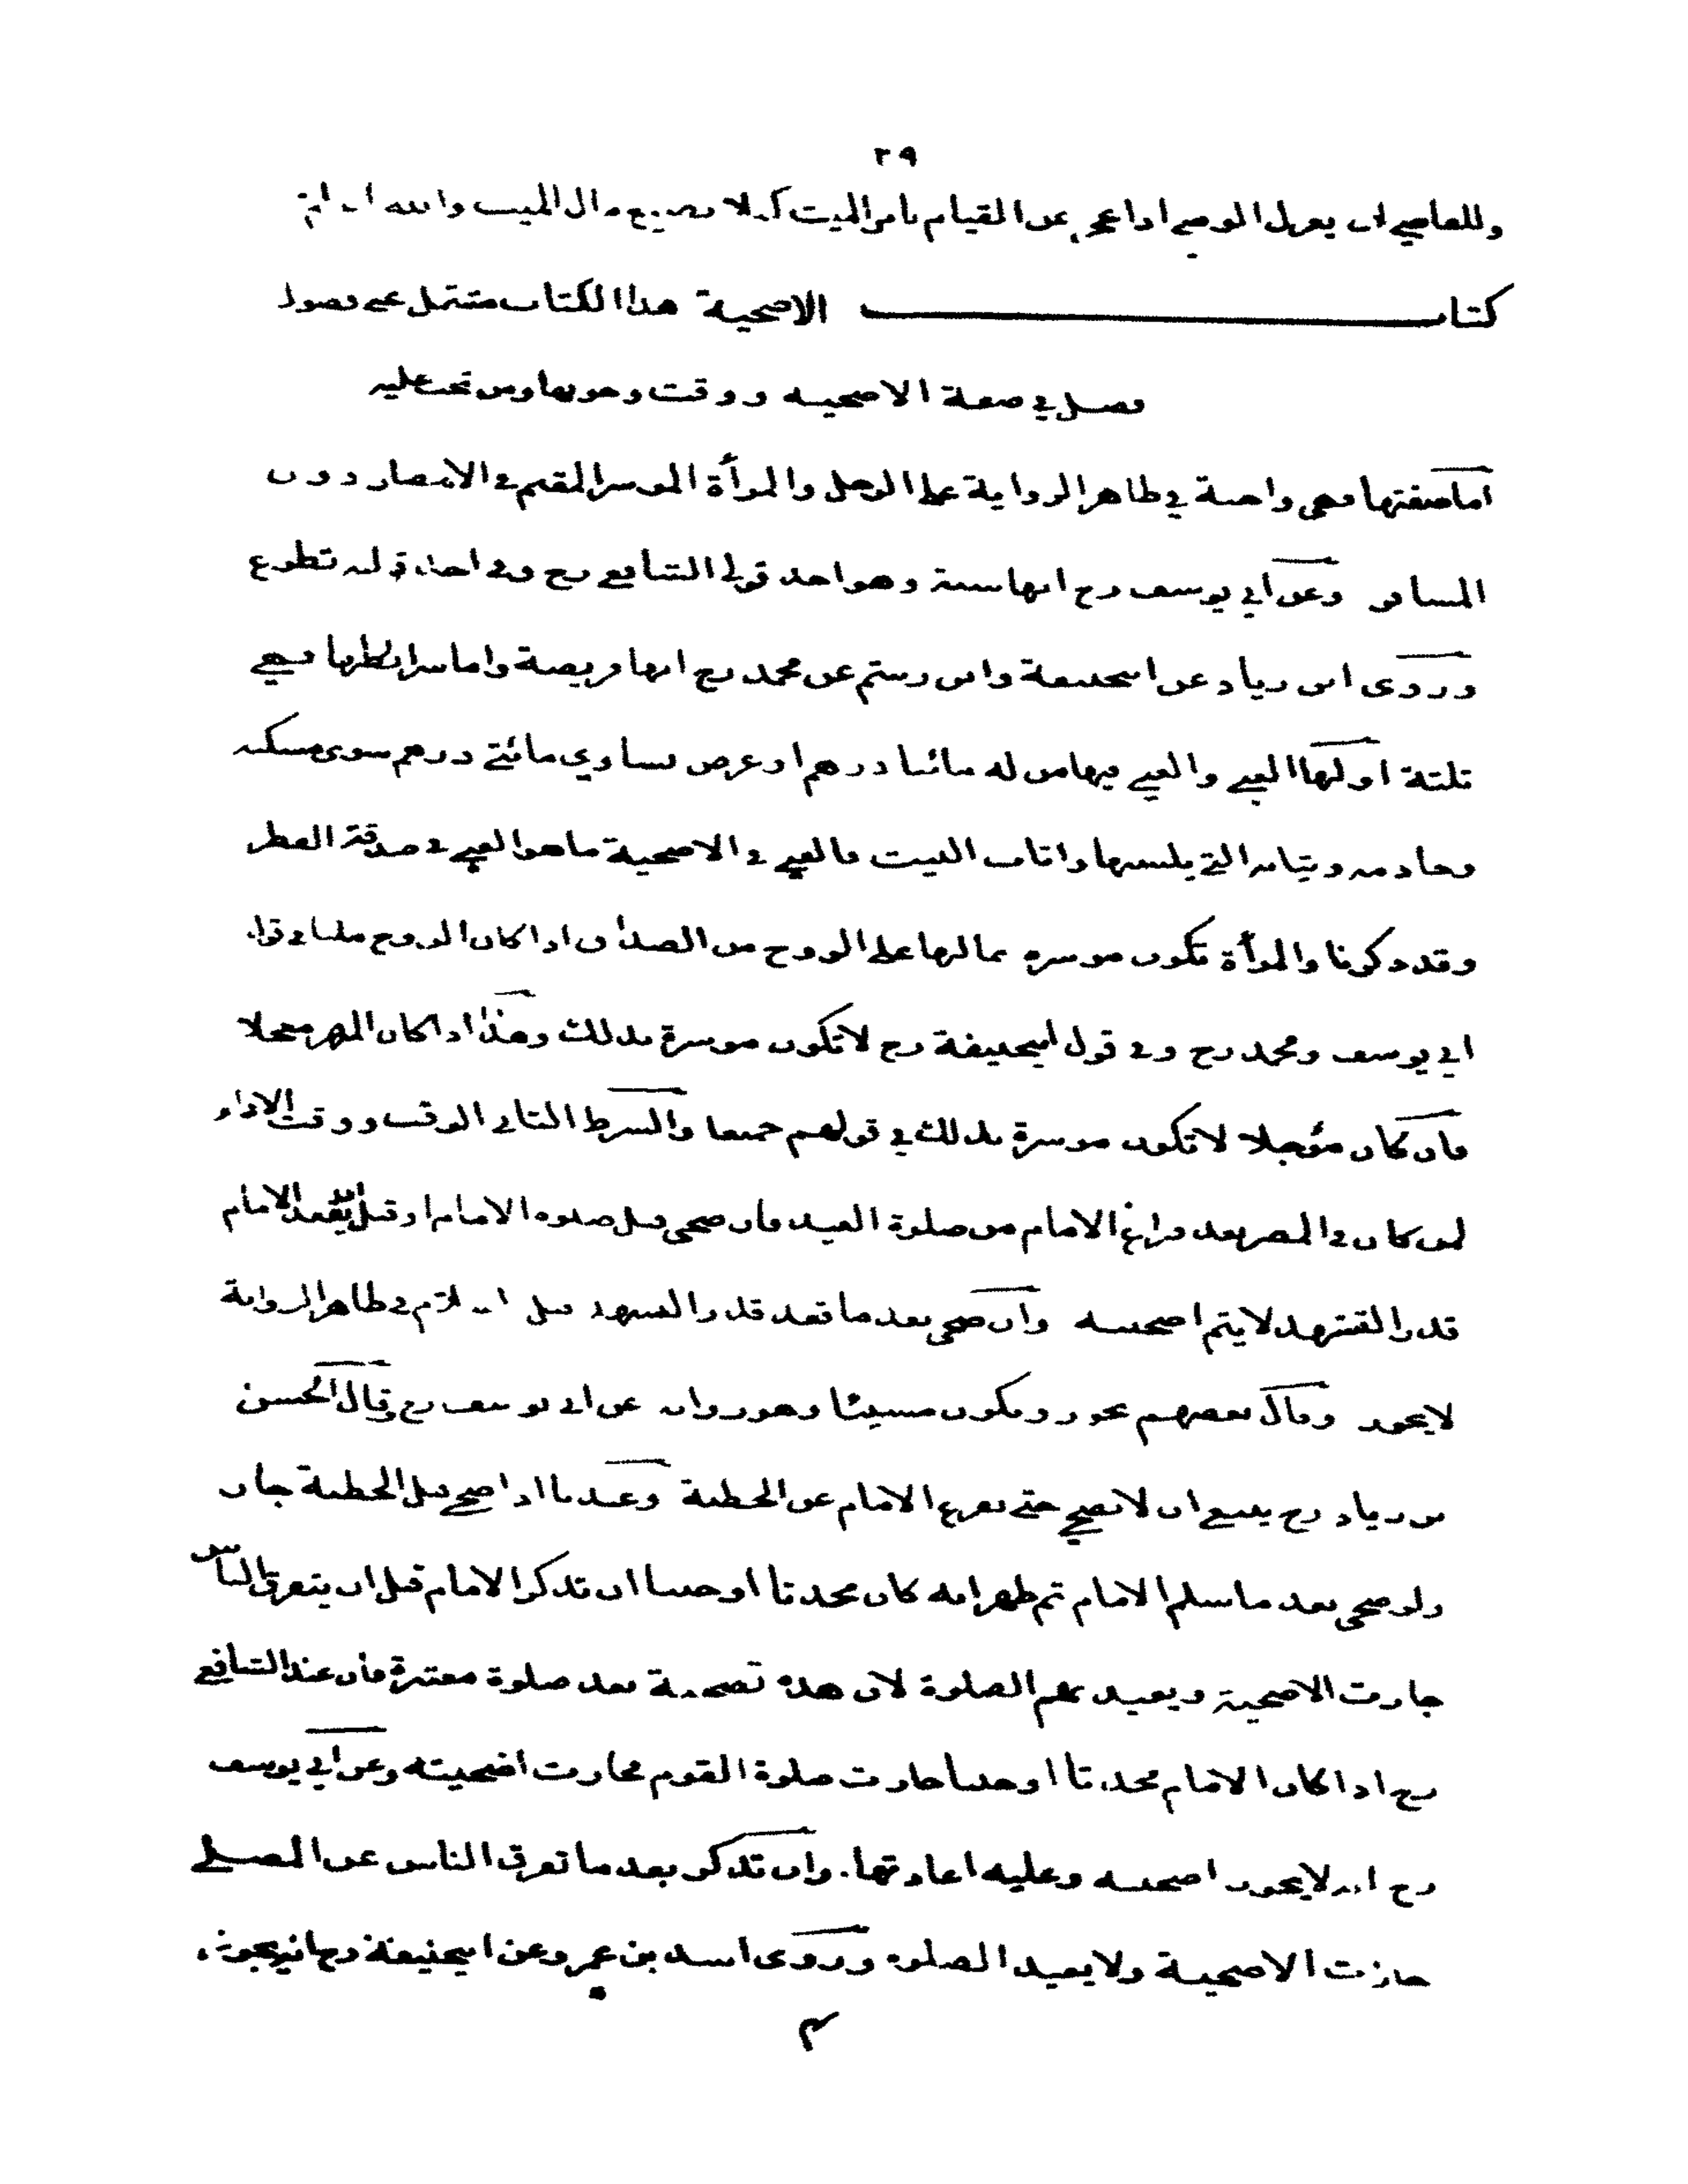 ٢٩
وللقاضي ان يعزل الوصي اذا عجز عن القيام بامر الميت كيلا يضيع مال الميت والله اعلم
كتاب الاضحية هذا الكتاب مشتمل على فصول
فصل في صفة الاضحية ووقت وجوبها ومن تجب عليه
اما صفتها فهي واجبة في ظاهر الرواية على الرجل والمرأة الموسر المقيم في الامصار دون
المسافر وعن ابي يوسف رح انها سنة وهو احد قولي الشافعي رح وفي احد قوليه تطوع
وروى ابن زياد عن ابيحنيفة وابن رستم عن محمد رح انها فريضة واما شرائطها فهي
ثلثة اولها الغني والغني فيها من له مائتا درهم او عرض يساوي مائتي درهم سوى مسكنه
وخادمه وثيابه التي يلبسها واثاث البيت فالغني في الاضحية ما هو الغني في صدقة الفطر
وقد ذكرنا والمرأة تكون موسرة بمالها على الزوج من الصداق اذا كان الزوج مليا في قول
ابي يوسف ومحمد رح وفي قول ابيحنيفة رح لا تكون موسرة بذلك وهذا اذا كان المهر معجلا
فان كان مؤجلا لا تكون موسرة بذلك في قولهم جميعا والشرط الثاني الوقت ووقت الاداء
لمن كان في المصر بعد فراغ الامام من صلوة العيد فان ضحى قبل صلوة الامام او قبل ان يقعد الامام
قدر التشهد لا يتم اضحيته وان ضحى بعد ما قعد قدر التشهد قبل السلام في ظاهر الرواية
لا يجوز وقال بعضهم يجوز ويكون مسيئا وهو رواية عن ابي يوسف رح وقال الحسن
بن زياد رح ينبغي ان لا يضحي حتى يفرغ الامام عن الخطبة وعندنا اذا ضحى قبل الخطبة جاز
ولو ضحى بعد ما سلم الامام ثم ظهر انه كان محدثا او جنبا ان تذكر الامام قبل ان يتفرق الناس
جازت الاضحية ويعيد بهم الصلوة لان هذه تضحية بعد صلوة معتبرة فان عند الشافعي
رح اذا كان الامام محدثا او جنبا جازت صلوة القوم فجازت اضحيته وعن ابي يوسف
رح انه لا يجوز اضحيته وعليه اعادتها. وان تذكر بعد ما تفرق الناس عن المصلى
جازت الاضحية ولا يعيد الصلوة وروى اسد بن عمرو عن ابيحنيفة رح انه يجوز